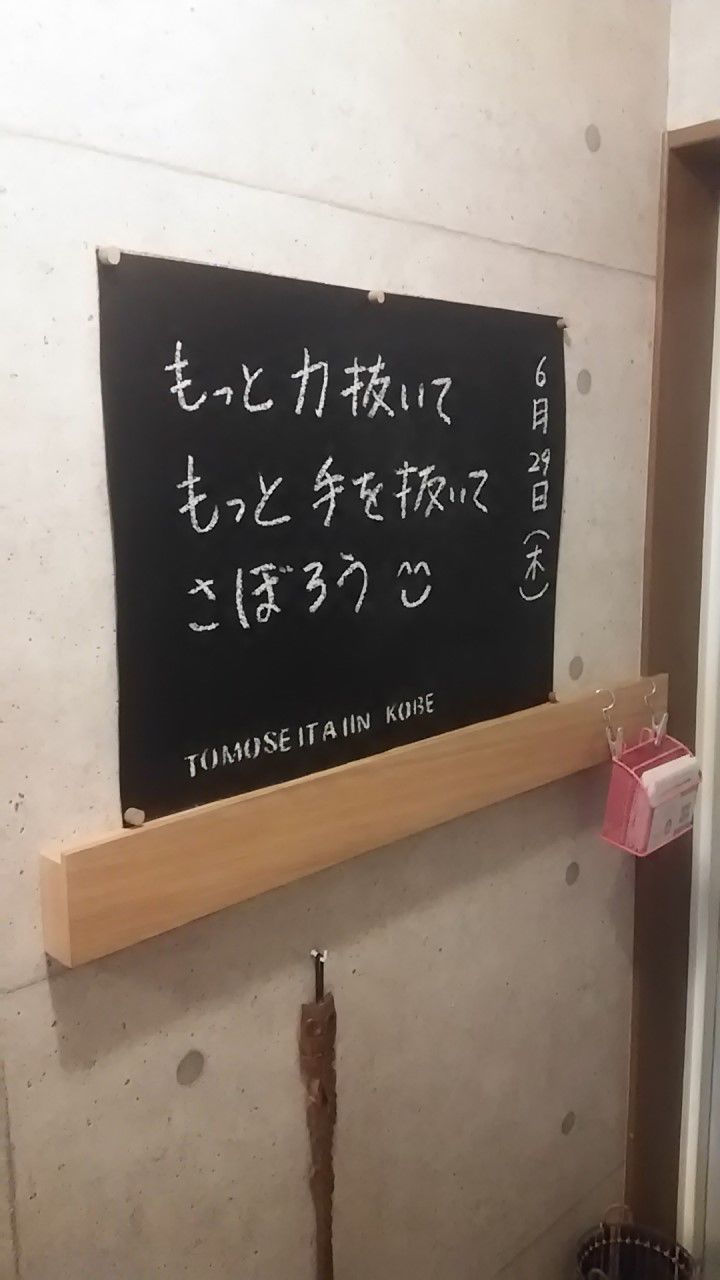 もっと力抜いて
もっと手を抜いて
さぼろう
6月29日(木)
TOMOSEITAIIN KOBE